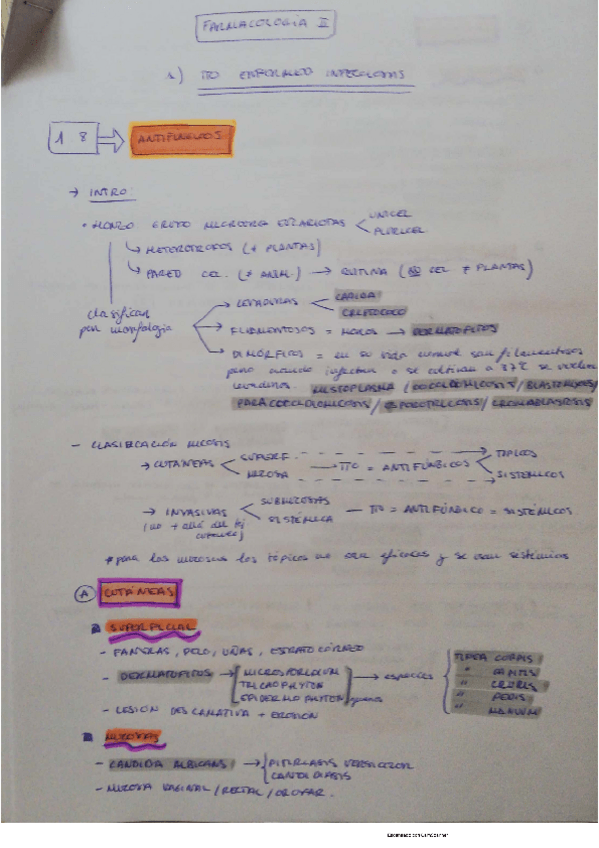 FARMACOLOGÍA II
1) TTO ENFERMEDADES INFECCIOSAS
1 8 → ANTIFÚNGICOS
→ INTRO:
• HONGO GRUPO MICROORG EUCARIOTAS < UNICEL
PLURICEL
↳ HETEROTROFOS (≠ PLANTAS)
↳ PARED CEL. (≠ ANIM.) → QUITINA ( CEL ≠ PLANTAS)
clasifican
por morfología
→ LEVADURAS < CANDIDA
CRIPTOCOCO
→ FILAMENTOSOS = MOHOS → DERMATOFITOS
→ DIMÓRFICOS = en su vida son filamentosos
pero cuando infectan o se cultivan a 37ºC se vuelven
HISTOPLASMA / / BLASTOMICOSIS /
PARACOCCIDIOMICOSIS / ESPOROTRICOSIS / CROMOBLASTOSIS
- CLASIFICACIÓN MICOSIS
→ CUTÁNEAS < SUPERF. - - - → TÓPICOS
MUCOSA — TTO = ANTIFÚNGICOS < SISTÉMICOS
→ INVASIVAS < SUBMUCOSAS
SISTÉMICA — TTO = ANTIFÚNGICO = SISTÉMICOS
(no + allá del tej
cutáneo)
* para las mucosas los tópicos no son eficaces y se usan sistémicos
A CUTÁNEAS
SUPERFICIAL
- FANERAS, PELO, UÑAS, ESTRATO CÓRNEO
- DERMATOFITOS → MICROSPORUM → especies TINEA CORPIS
TRICOPHYTON " CAPITIS
EPIDERMOPHYTON " CRURIS
" PEDIS
" MANUUM
- LESIÓN DESCAMATIVA + EROSIÓN
MUCOSAS
- CANDIDA ALBICANS → PITIRIASIS VERSICOLOR
CANDIDIASIS
- MUCOSA VAGINAL / RECTAL / OROFAR.
Escaneado con CamScanner